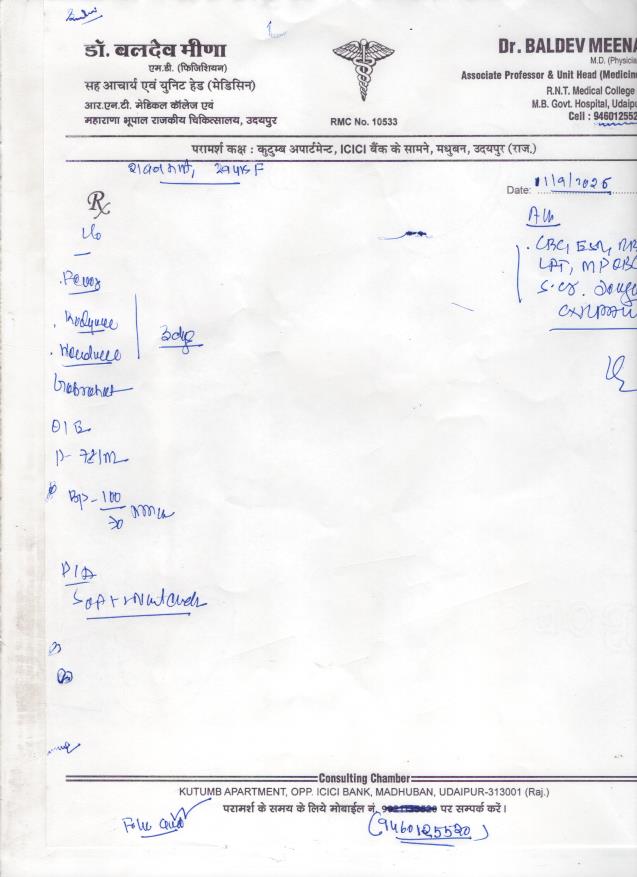 डॉ. बलदेव मीणा
एम.डी. (फिजिशियन)
सह आचार्य एवं यूनिट हेड (मेडिसिन)
आर.एन.टी. मेडिकल कॉलेज एवं
महाराणा भूपाल राजकीय चिकित्सालय, उदयपुर
RMC No. 10533
Dr. BALDEV MEENA
M.D. (Physicia
Associate Professor & Unit Head (Medicin
R.N.T. Medical College
M.B. Govt. Hospital, Udaipu
Cell : 946012552
परामर्श कक्ष : कुटुम्ब अपार्टमेन्ट, ICICI बैंक के सामने, मधुबन, उदयपुर (राज.)
F
Date: 11/9/2025
Rx
Adv
CBC, ESR, RB
LFT, MP QBC
S. Cr. Dengu
c/o
Fever
Bodyache
Headache
3 day
O/E
P- 78/M
BP- 100/70 mmHg
Consulting Chamber
KUTUMB APARTMENT, OPP. ICICI BANK, MADHUBAN, UDAIPUR-313001 (Raj.)
परामर्श के समय के लिये मोबाईल नं. पर सम्पर्क करें।
(9460125520)